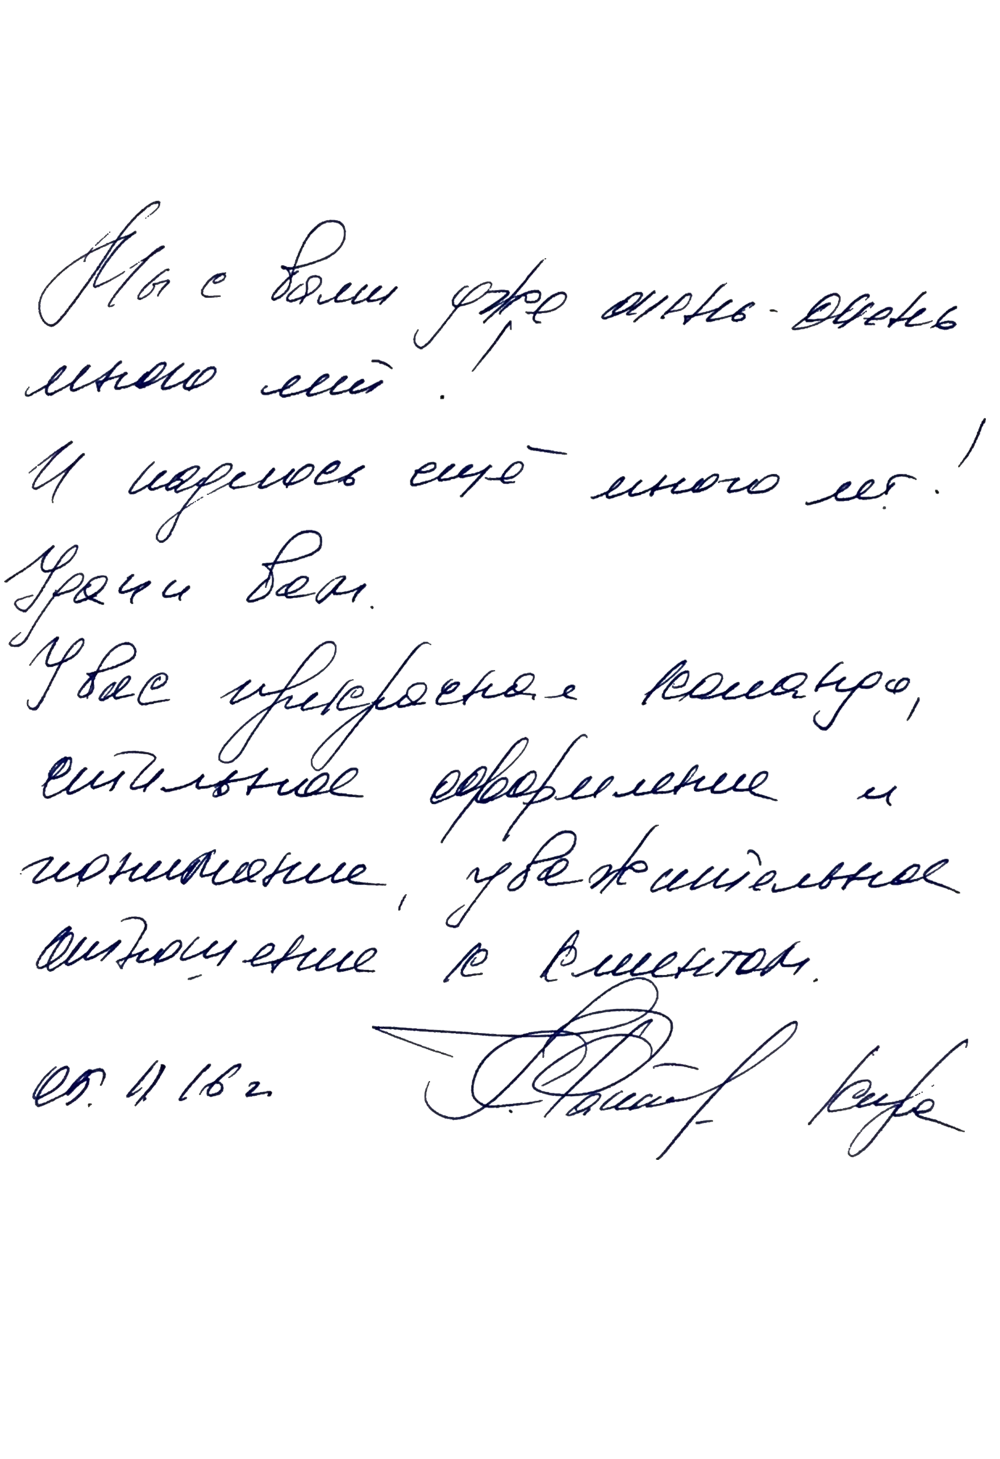 Мы с вами уже очень-очень
много лет!
И надеюсь ещё много лет!
Удачи Вам.
У вас прекрасная команда,
стильное оформление и
понимание, уважительное
отношение к клиентам.
05. 11 16 г. Кира